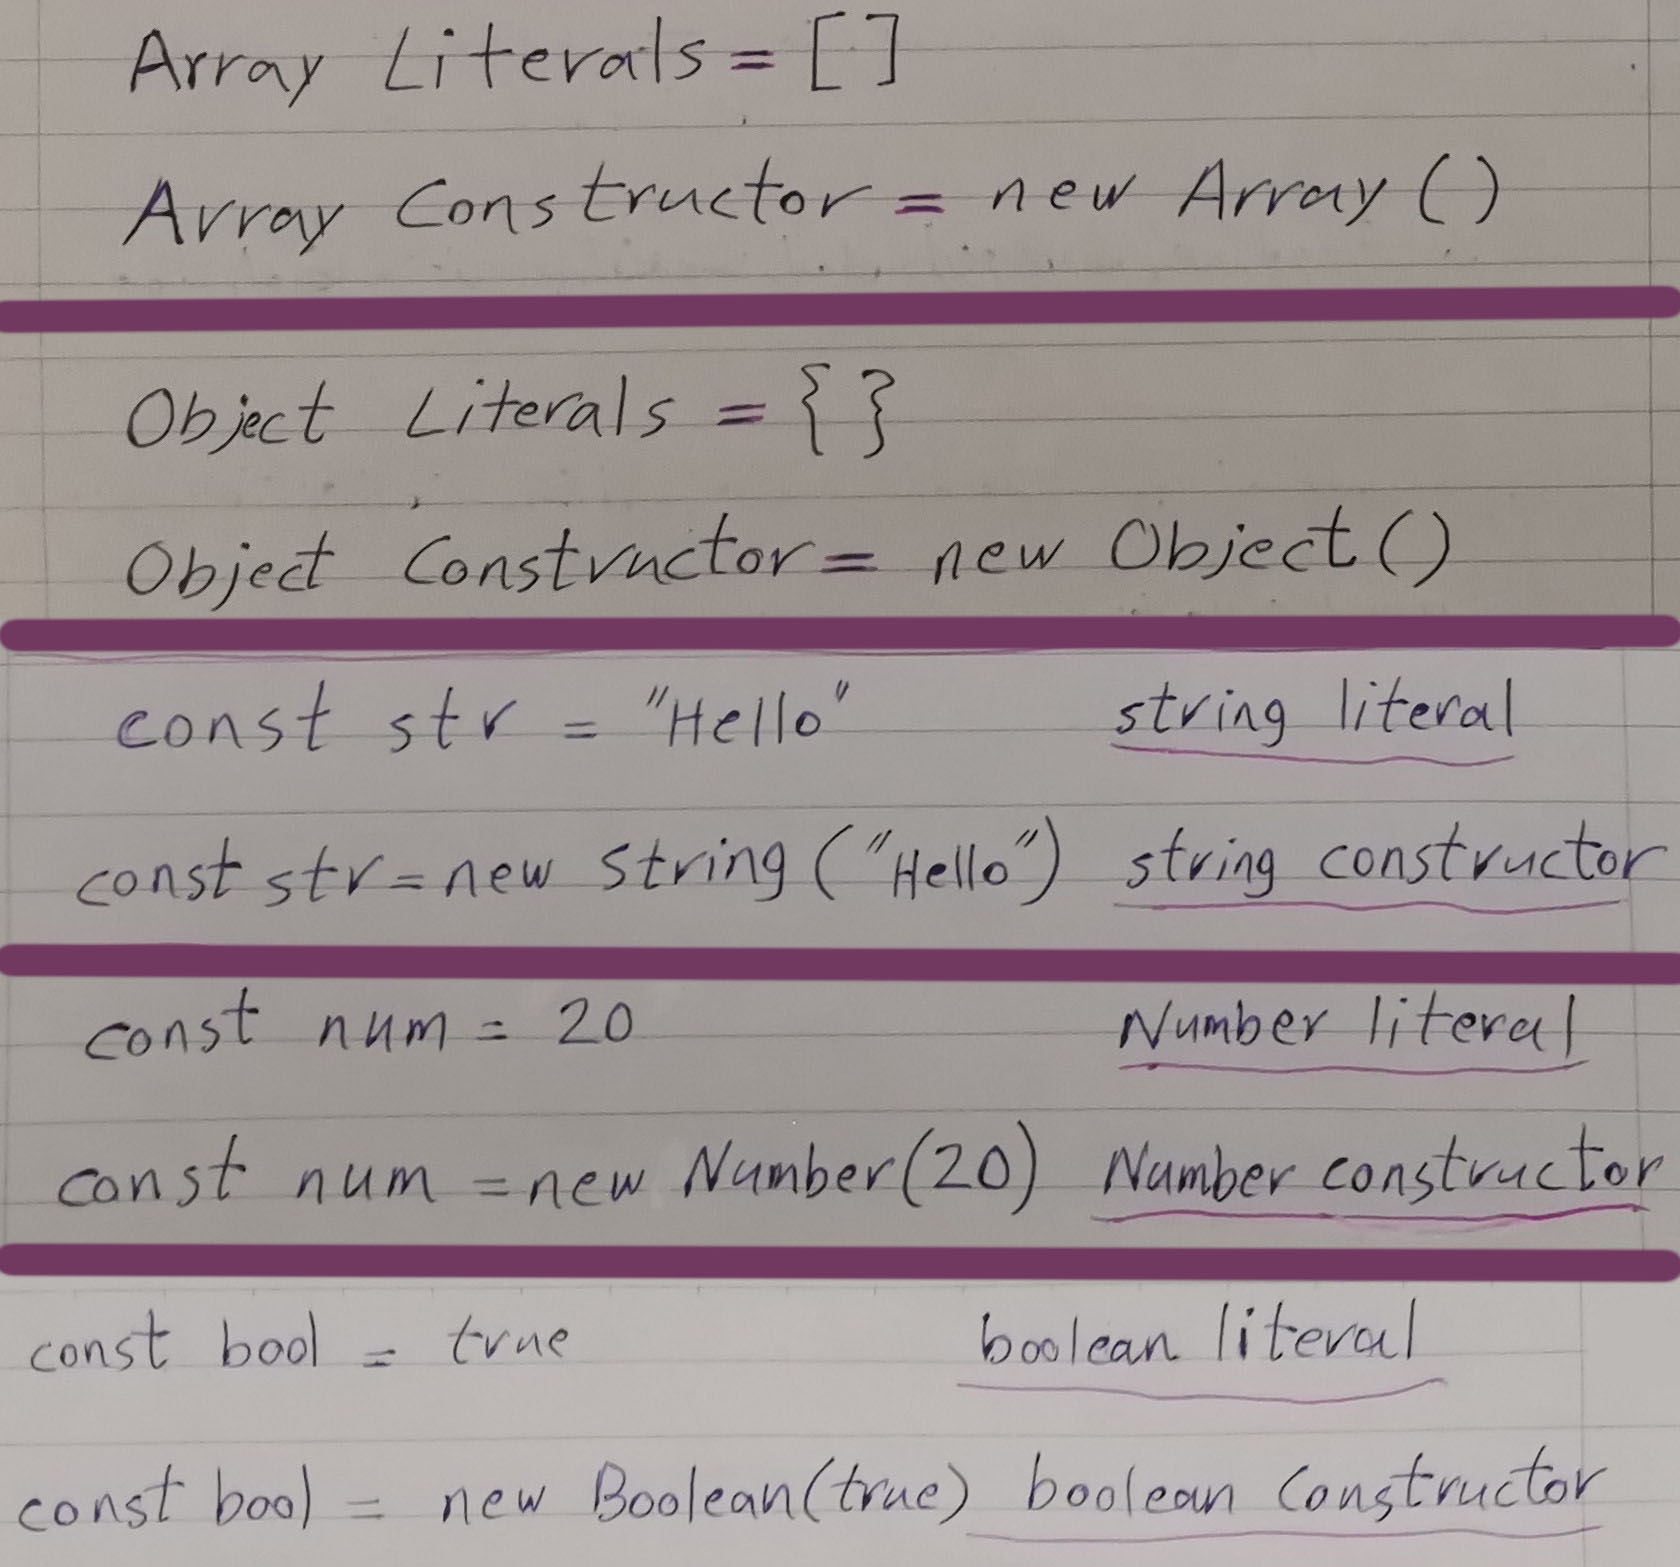 Array Literals = []
Array Constructor = new Array ()
Object Literals = { }
Object Constructor = new Object ()
const str = "Hello" string literal
const str = new String ("Hello") string constructor
const num = 20 Number literal
const num = new Number(20) Number constructor
const bool = true boolean literal
const bool = new Boolean(true) boolean Constructor